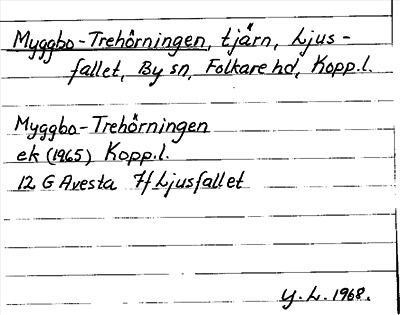 Myggbo-Trehörningen, tjärn, Ljus-
fallet, By sn, Folkare hd, Kopp.l.
Myggbo-Trehörningen
ek (1965) Kopp.l.
12 G Avesta 7f Ljusfallet
Y.L. 1968.